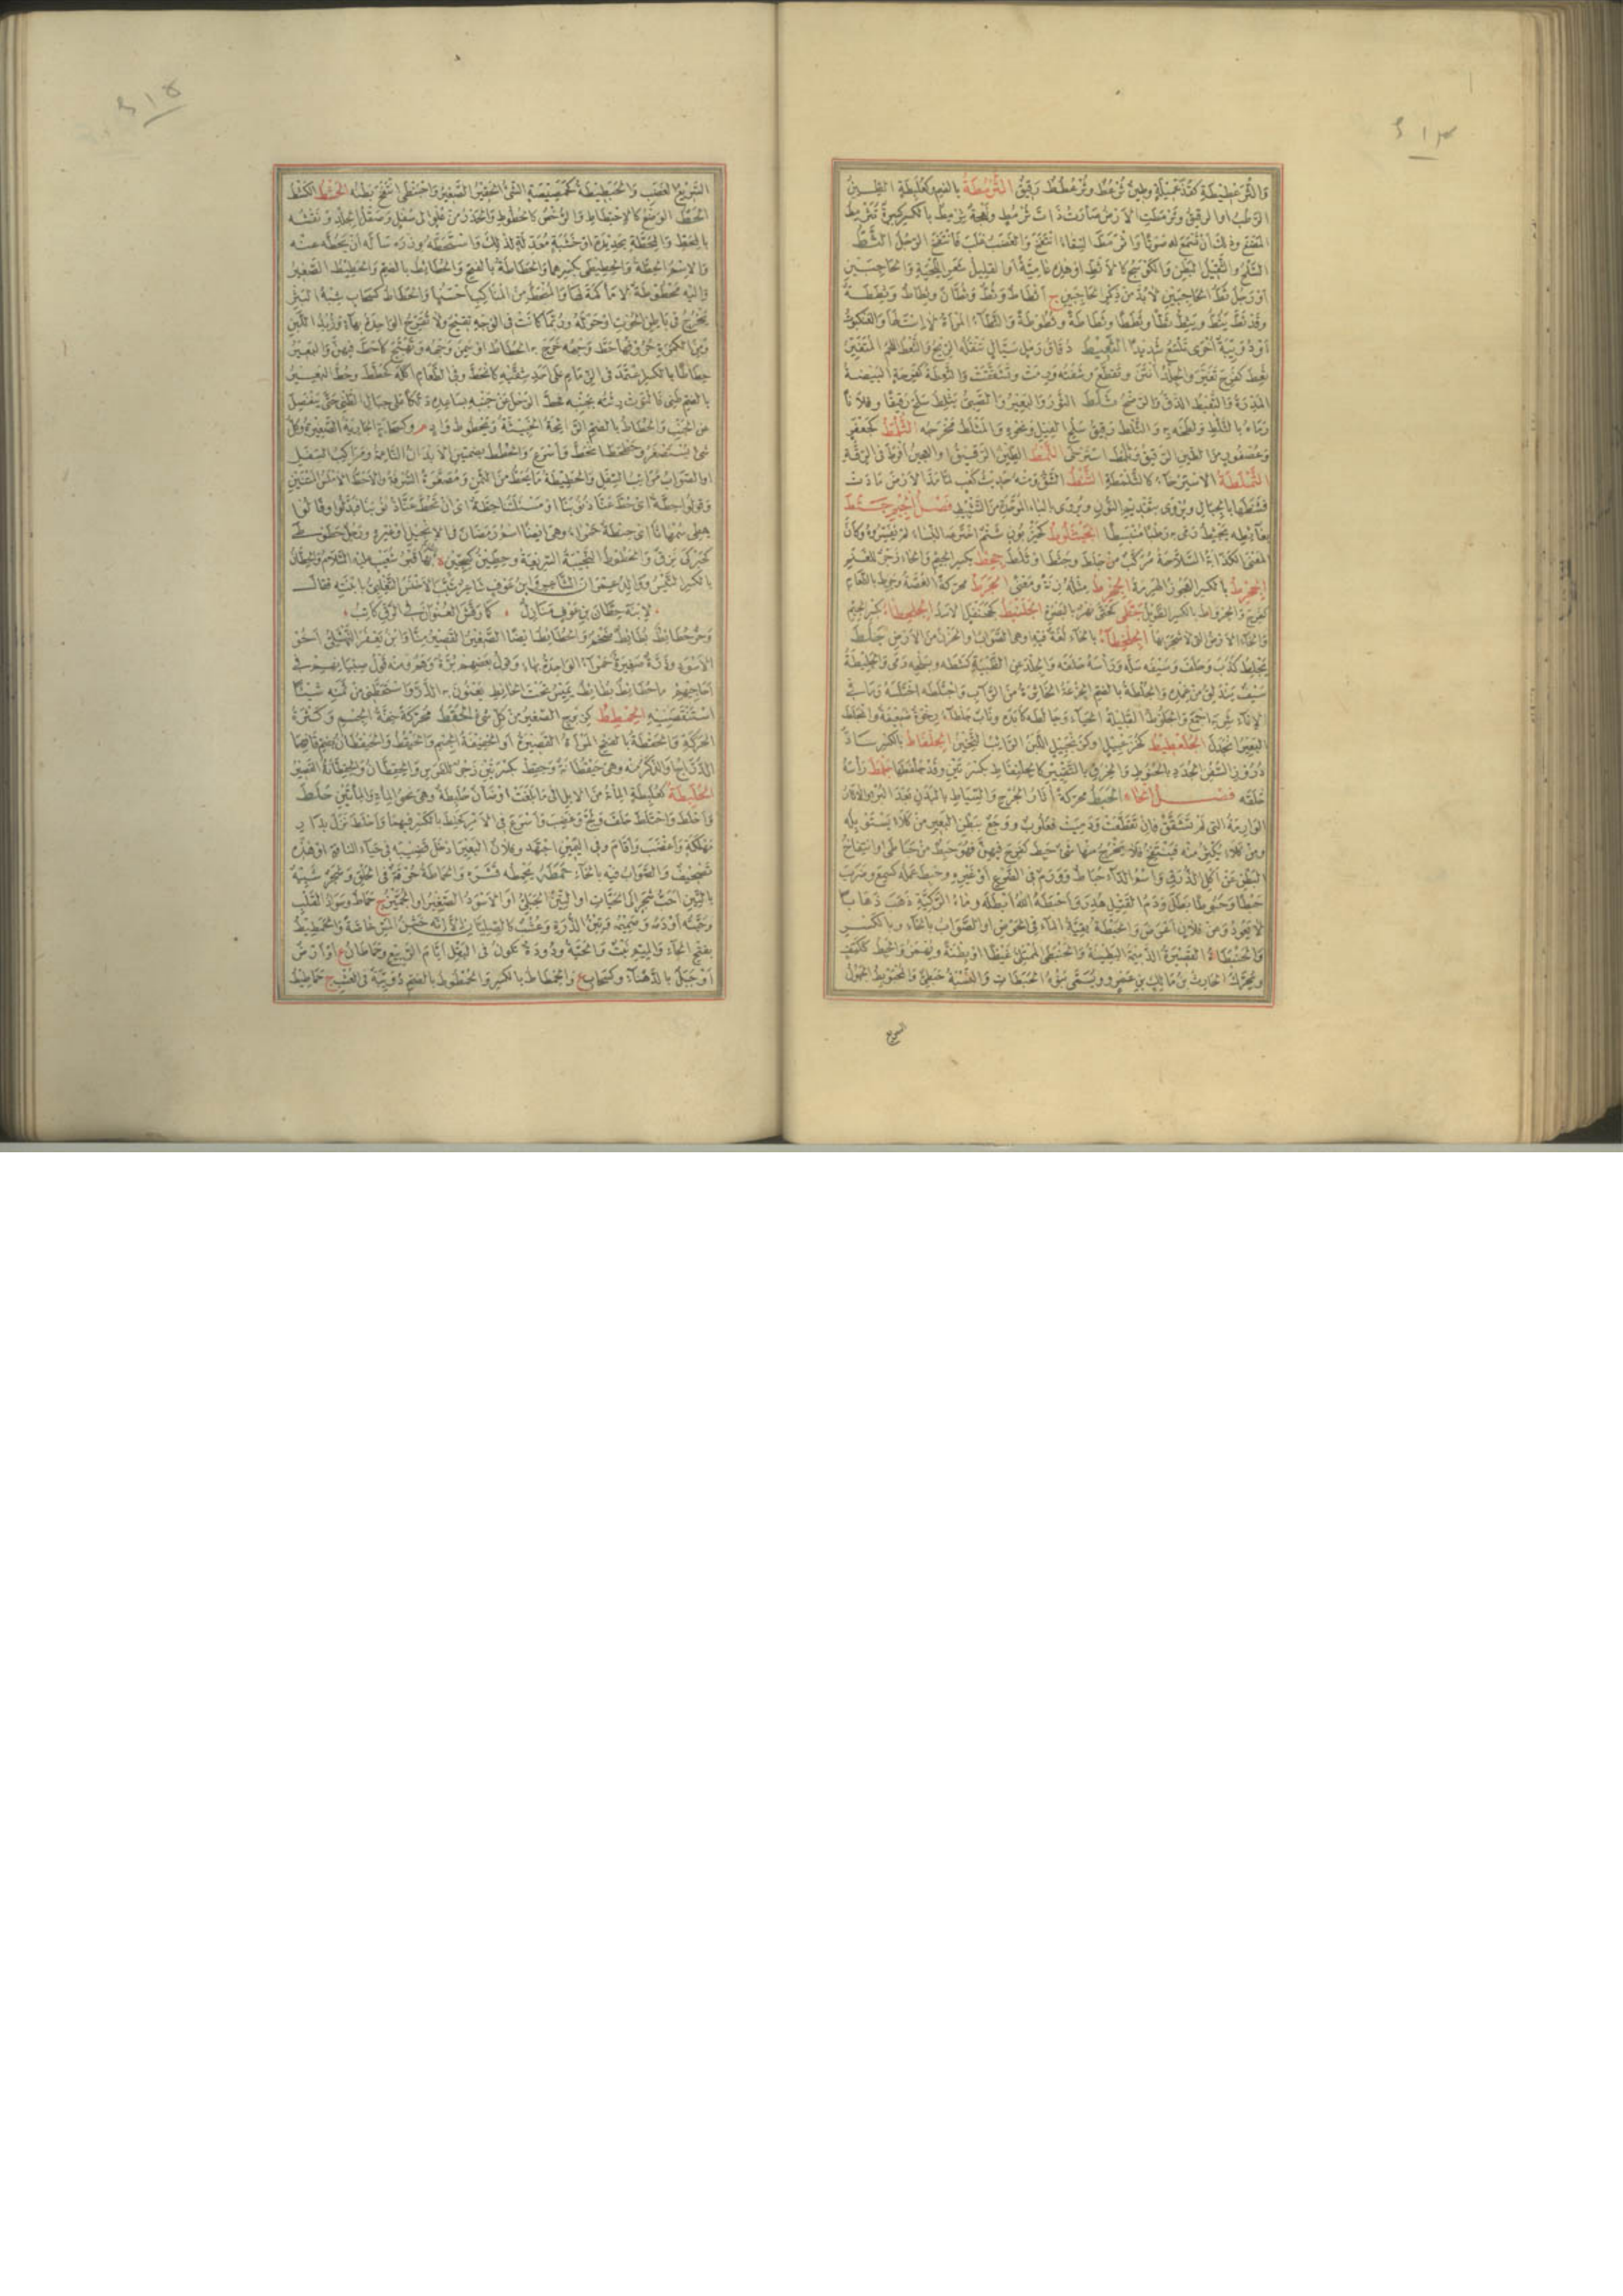 والثرعطيطة كقذعميلة وطين ثرعط وثرعطط رقيق الثرمطة بالضم وكعلبطة الطين
الرطب او الرقيق وثرمطت الارض صارت ذات ثرمط ونعجة ثرمط بالكسر كبيرة
المضغ وذلك ان تسمع له صوتا واثرمط السقاء انتفخ والغضب غلب فانتفخ الرجل الثط
السلح والثقيل البطن والكوسج كالاثط او هذه عامية او القليل شعر اللحية والحاجبين
او رجل ثط الحاجبين لا بد من ذكر الحاجبين ج اثطاط وثط وثطان وثطاط وثططة
وقد ثط يثط ويثط ثطا وثططا وثطاطة وثطوطة والثطاء المرأة لا است لها والعنكبوت
او دويبة اخرى تلسع شديدا الثعيط دقاق رمل سيال تنقله الريح والثعط اللحم المتغير
ثعط كفرح تغير والجلد انتن وتقطع وشفته ورمت وتشققت والثعطة كفرحة البيضة
المذرة والتثعيط الدق والرضخ ثلط الثور والبعير والصبي يثلط سلح رقيقا وفلانا
رماه بالثلط ولطخه به والثلط رقيق سلح الفيل ونحوه والمثلط مخرجه الثلمط كجعفر
وعصفور من الطين الرقيق وثلمط استرخى الثمط الطين الرقيق او العجين افرط في الرقة
الثملطة الاسترخاء كالثلمطة الثنط الشق ومنه حديث كعب لما مد الارض مادت
فثنطها بالجبال ويروى بتقديم النون ويروى بالباء الموحدة من التثبيط فصل الجيم جثط
بغائطه يجثط رمى به رطبا منبسطا الجثلوط كحيزبون شتم اخترعه النساء لم يفسروه وكأن
المعنى الكذابة السلاحة مركب من جلط وجثط او ثلط جحط بكسر الجيم والحاء زجر للغنم
الجحرط بالكسر العجوز الهرمة الجخرط مثله زنة ومعنى الجرط محركة الغصة وجرط بالطعام
كفرح والجرواط بالكسر الطويل جطى كحتى نهر بالبصرة الجلنبط كجحنفل الاسد الجلحطاء بكسر الجيم
والحاء الارض التي لا شجر بها الجلخطاء بالخاء لغة فيه او هي الصواب والحزن من الارض جلط
يجلط كذب وحلف وسيفه سله ورأسه حلقه والجلد عن الظبية كشطه وبسلحه رمى والجليطة
سيف يندلق من غمده والجلطة بالضم الجزعة الخاثرة من الرائب واجتلطه اختلسه وما في
الاناء شربه اجمع والجلوط القليلة الحياء وجالطه كابده وناب جلطاء رخوة ضعيفة وانجلط
البعير انجدل الجلعطيط كخزعبيل اللبن الرائب الثخين الجلفاط بالكسر ساد
دروز السفن الجدد بالخيوط والخرق بالتقيير كالجلنفاط بكسرتين وقد جلفطها جلمط رأسه
حلقه فصل الحاء الحبط محركة آثار الجرح والسياط بالبدن بعد البرء او الآثار
الوارمة التي لم تشقق فان تقطعت ودميت فعلوب ووجع ببطن البعير من كلأ يستوبله
ومن كلأ يكثر منه فتنتفخ فلا يخرج منها شيء حبط كفرح فيهن فهو حبط من حباطى او انتفاخ
البطن عن اكل الذرق واسم الداء حباط وورم في الضرع او غيره وحبط عمله كسمع وضرب
حبطا وحبوطا بطل ودم القتيل هدر واحبطه الله ابطله وماء الركية ذهب ذهابا
لا يعود وعن فلان اعرض والحبطة بقية الماء في الحوض او الصواب بالخاء وبالكسر
والحبنطأة القصيرة الدميمة البطينة والحبنطى الممتلئ غيظا او بطنة ويهمز والحبط ككتف
ويحرك الحارث بن مالك بن عمرو ويسمى بنوه الحبطات والنسبة حبطي والمحبوبط الجهول
السريع
السريع الغضب والحبطيطة كحمصيصة الشيء الحقير الصغير واحبنطى انتفخ بطنه الحثط الكشط
الحط الوضع كالاحتطاط والرخص كالحطوط والحدر من علو الى سفل وصقل الجلد ونقشه
بالمحط والمحطة بحديدة او خشبة معدة لذلك واستحطه وزره سأله ان يحطه عنه
والاسم الحطة والحطيطى بكسرهما والحطاطة بالفتح والحطائط بالضم والحطيط الصغير
والية محطوطة لا مأكمة لها والمنحط من المناكب احسنها والحطاط كسحاب شبه البثر
يخرج في باطن الحوق او حوله وربما كانت في الوجه تقيح ولا تقرح الواحدة بهاء وزبد اللبن
ومن الكمرة حروفها حط وجهه خرج به الحطاط او سمن وجهه وتهيج كاحط فيهن والبعير
حطاطا بالكسر اعتمد في الزمام على احد شقيه كانحط وفي الطعام اكله كحطط وحط البعير
بالضم طني فالتوت رئته بجنبه فحط الرحل عن جنبه بساعده دلكا على حيال الطنى حتى ينفصل
عن الجنب والحطاط بالضم الرائحة الخبيثة ويحطوط واد م وكسحابة الجارية الصغيرة وكل
شيء يستصغر وحطحط انحط واسرع والحطط بضمتين الابدان الناعمة ومراكب السفل
او الصواب مراتب السفل والحطيطة ما يحط من الثمن ومصغرة السرفة والاحط الاملس المتنين
وقولوا حطة اي حط عنا ذنوبنا او مسئلتنا حطة اي ان تحط عنا ذنوبنا فبدلوا وقالوا
هطى سمهاثا اي حنطة حمراء وهي ايضا اسم رمضان في الانجيل او غيره ورجل حطوطى
كحبركى نزق والحطوط النجيبة السريعة وحطين كسجين ة بها قبر شعيب عليه السلام والحطان
بالكسر التيس ووالد عمران الشاعر وابن عوف شاعر شبب الاخنس التغلبي بابنته فقال
لابنة حطان بن عوف منازل * كما رقش العنوان في الرق كاتب
وحر حطائط بطائط ضخم والحطائط ايضا الصغير القصير منا وابن يعفر النهشلي اخو
الاسود وذرة صغيرة حمراء الواحدة بهاء وقول بعضهم برة وهم ومنه قول صبيانهم في
احاجيهم ما حطائط بطائط يميس تحت الحائط يعنون به الذر واستحطني من ثمنه شيئا
استنقصنيه الحطمطط كزبرج الصغير من كل شيء الحقط محركة خفة الجسم وكثرة
الحركة والحقطة بالفتح المرأة القصيرة او الخفيفة الجسم والحيقط والحيقطان بضم قافهما
الدراج او الذكر منه وهي حيقطانة وحقط بكسرتين زجر للفرس والحقطان والحقطانة القصير
الحلبطة كعلبطة المائة من الابل الى ما بلغت او ضأن حلبطة وهي نحو المائة والمائتين حلط
واحلط واحتلط حلف ولج وغضب واسرع في الامر كحلط بالكسر فيهما واحلط نزل بدار
مهلكة واغضب واقام وفي اليمين اجتهد وفلان البعير ادخل قضيبه في حياء الناقة او هذه
تصحيف والصواب فيه بالخاء حمطه يحمطه قشره والحماطة حرقة في الحلق وشجر شبيه
بالتين احب شجر الى الحيات او التين الجبلي او الاسود الصغير او الجميز ج حماط وسواد القلب
وحبته او دمه وصميمه وتبن الذرة وعشب كالصليان الا انه خشن المس خاصة والحمطيط
بفتح الحاء والميم نبت والحية ودودة تكون في البقل ايام الربيع وحماطان ع او ارض
او جبل بالدهناء وكسحاب ع والحمطاط بالكسر والحمطوط بالضم دويبة في العشب ج حماطيط